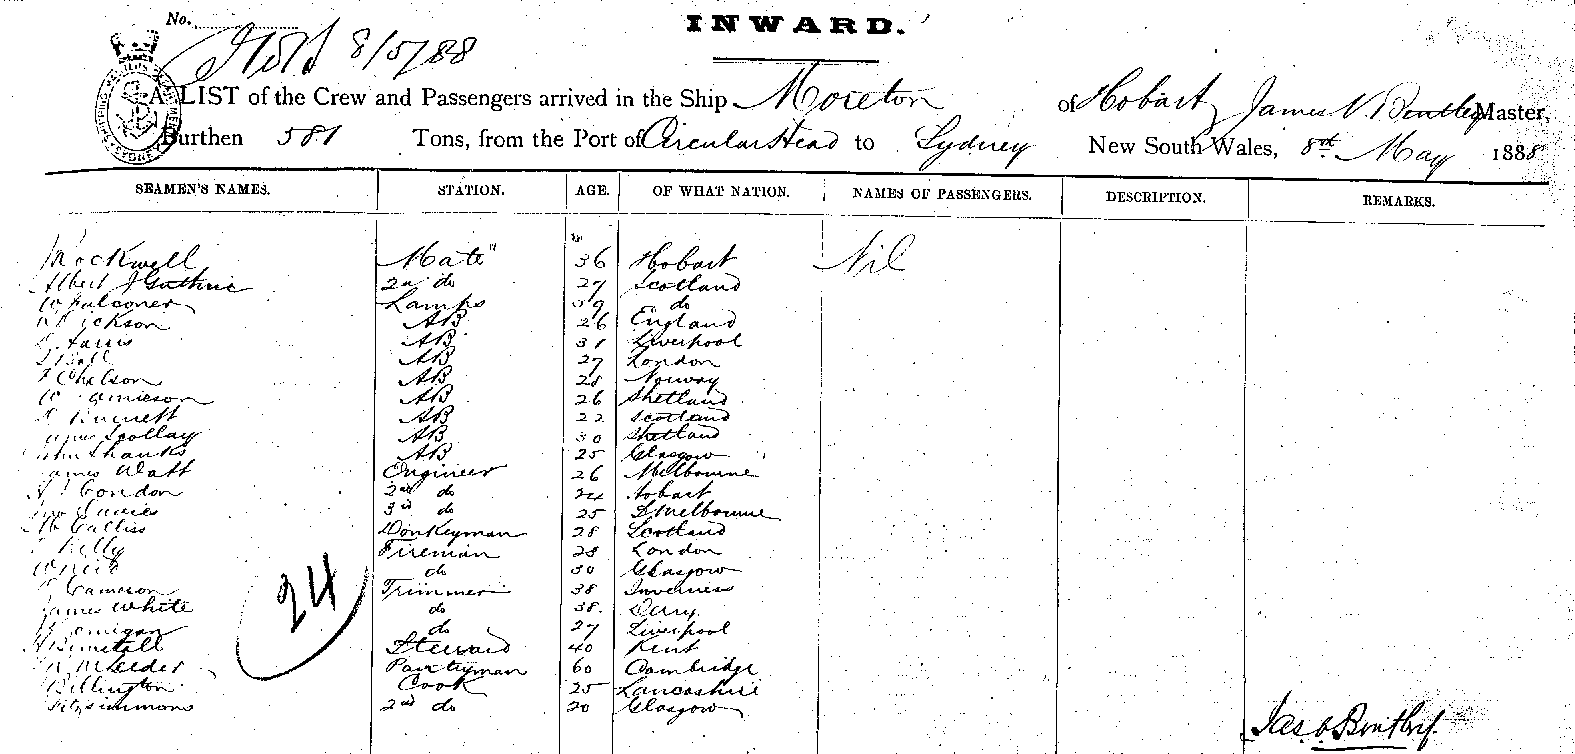 No.
INWARD.
8/5/88
A LIST of the Crew and Passengers arrived in the Ship Moreton of Hobart James V. Bentley Master,
Burthen 581 Tons, from the Port of Circular Head to Sydney New South Wales, 8th May 1888
SEAMEN'S NAMES. STATION. AGE. OF WHAT NATION. NAMES OF PASSENGERS. DESCRIPTION. REMARKS.
Rockwell Mate 36 Hobart Nil
Albert J Guthrie 2nd do 27 Scotland
W Falconer Lamps 39 do
Dickson AB 26 England
AB 31 Liverpool
AB 27 London
AB 28 Norway
W Jamieson AB 26 Shetland
Burnett AB 22 Scotland
James Scollay AB 30 Shetland
John Shanks AB 25 Glasgow
James Watt Engineer 26 Melbourne
Gordon 2nd do 24 Hobart
Davies 3rd do 25 Melbourne
Donkeyman 28 Scotland
Kelly Fireman 28 London
do 30 Glasgow
Cameron Trimmer 38 Inverness
James White do 38 Derry
do 27 Liverpool
Steward 40 Kent
McLeeder Pantryman 60 Cambridge
Billington Cook 25 Lancashire
Fitzsimmons 2nd do 20 Glasgow
24